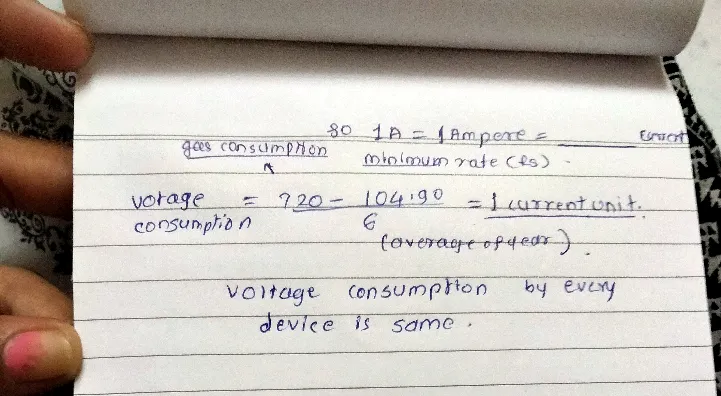 so 1A = 1 Ampere = ______ current
gas consumption minimum rate (Rs) -
votage = 720 - 104.90 = 1 current unit.
consumption 6
(average of year).
Voltage consumption by every
device is same.